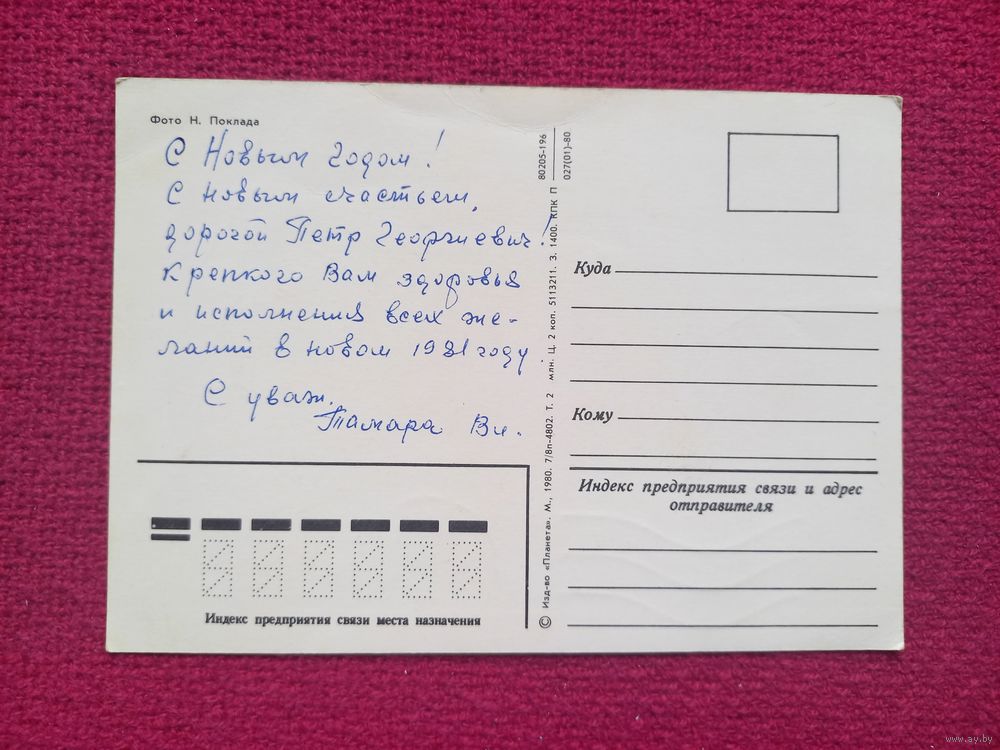 Фото Н. Поклада
С Новым Годом!
С новым счастьем,
дорогой Петр Георгиевич!
Крепкого Вам здоровья
и исполнения всех же-
ланий в новом 1981 году
С уваж.
Тамара Вл.
Индекс предприятия связи места назначения
© Изд-во «Планета». М., 1980. 7/8п-4802. Т. 2 млн. Ц. 2 коп. 5113211. З. 1400. КПК П
80205-196
027(01)-80
Куда
Кому
Индекс предприятия связи и адрес
отправителя
www.ay.by